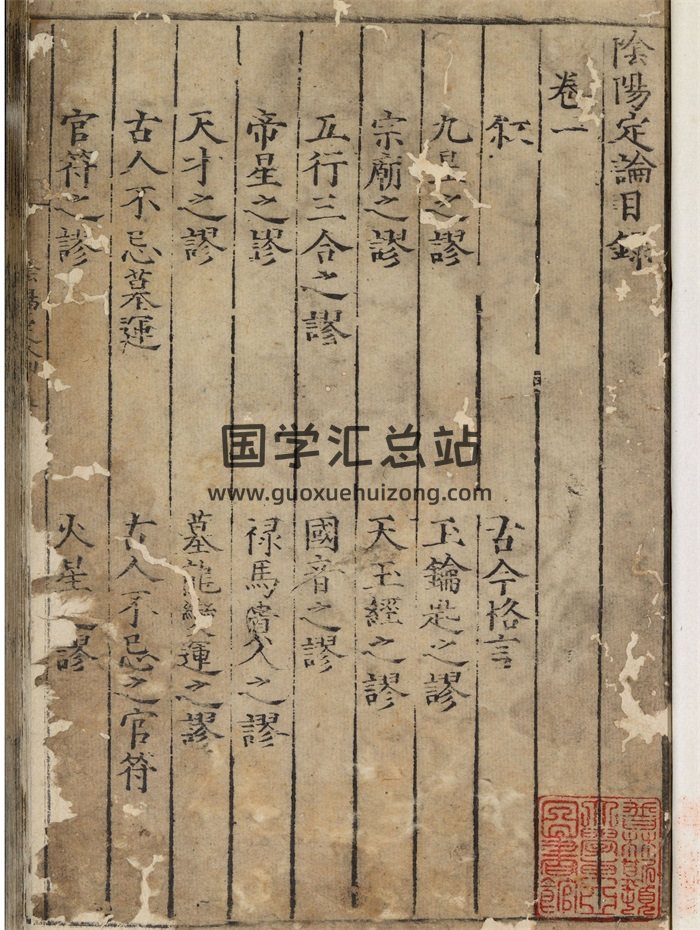 陰陽定論目錄
卷一
叙　古今格言
九星之謬　玉鑰匙之謬
宗廟之謬　天玉經之謬
五行三合之謬　國音之謬
帝星之謬　禄馬貴人之謬
天才之謬　墓龍變運之謬
古人不忌墓運　古人不忌之官符
官符之謬　火星之謬
国学汇总站
www.guoxuehuizong.com